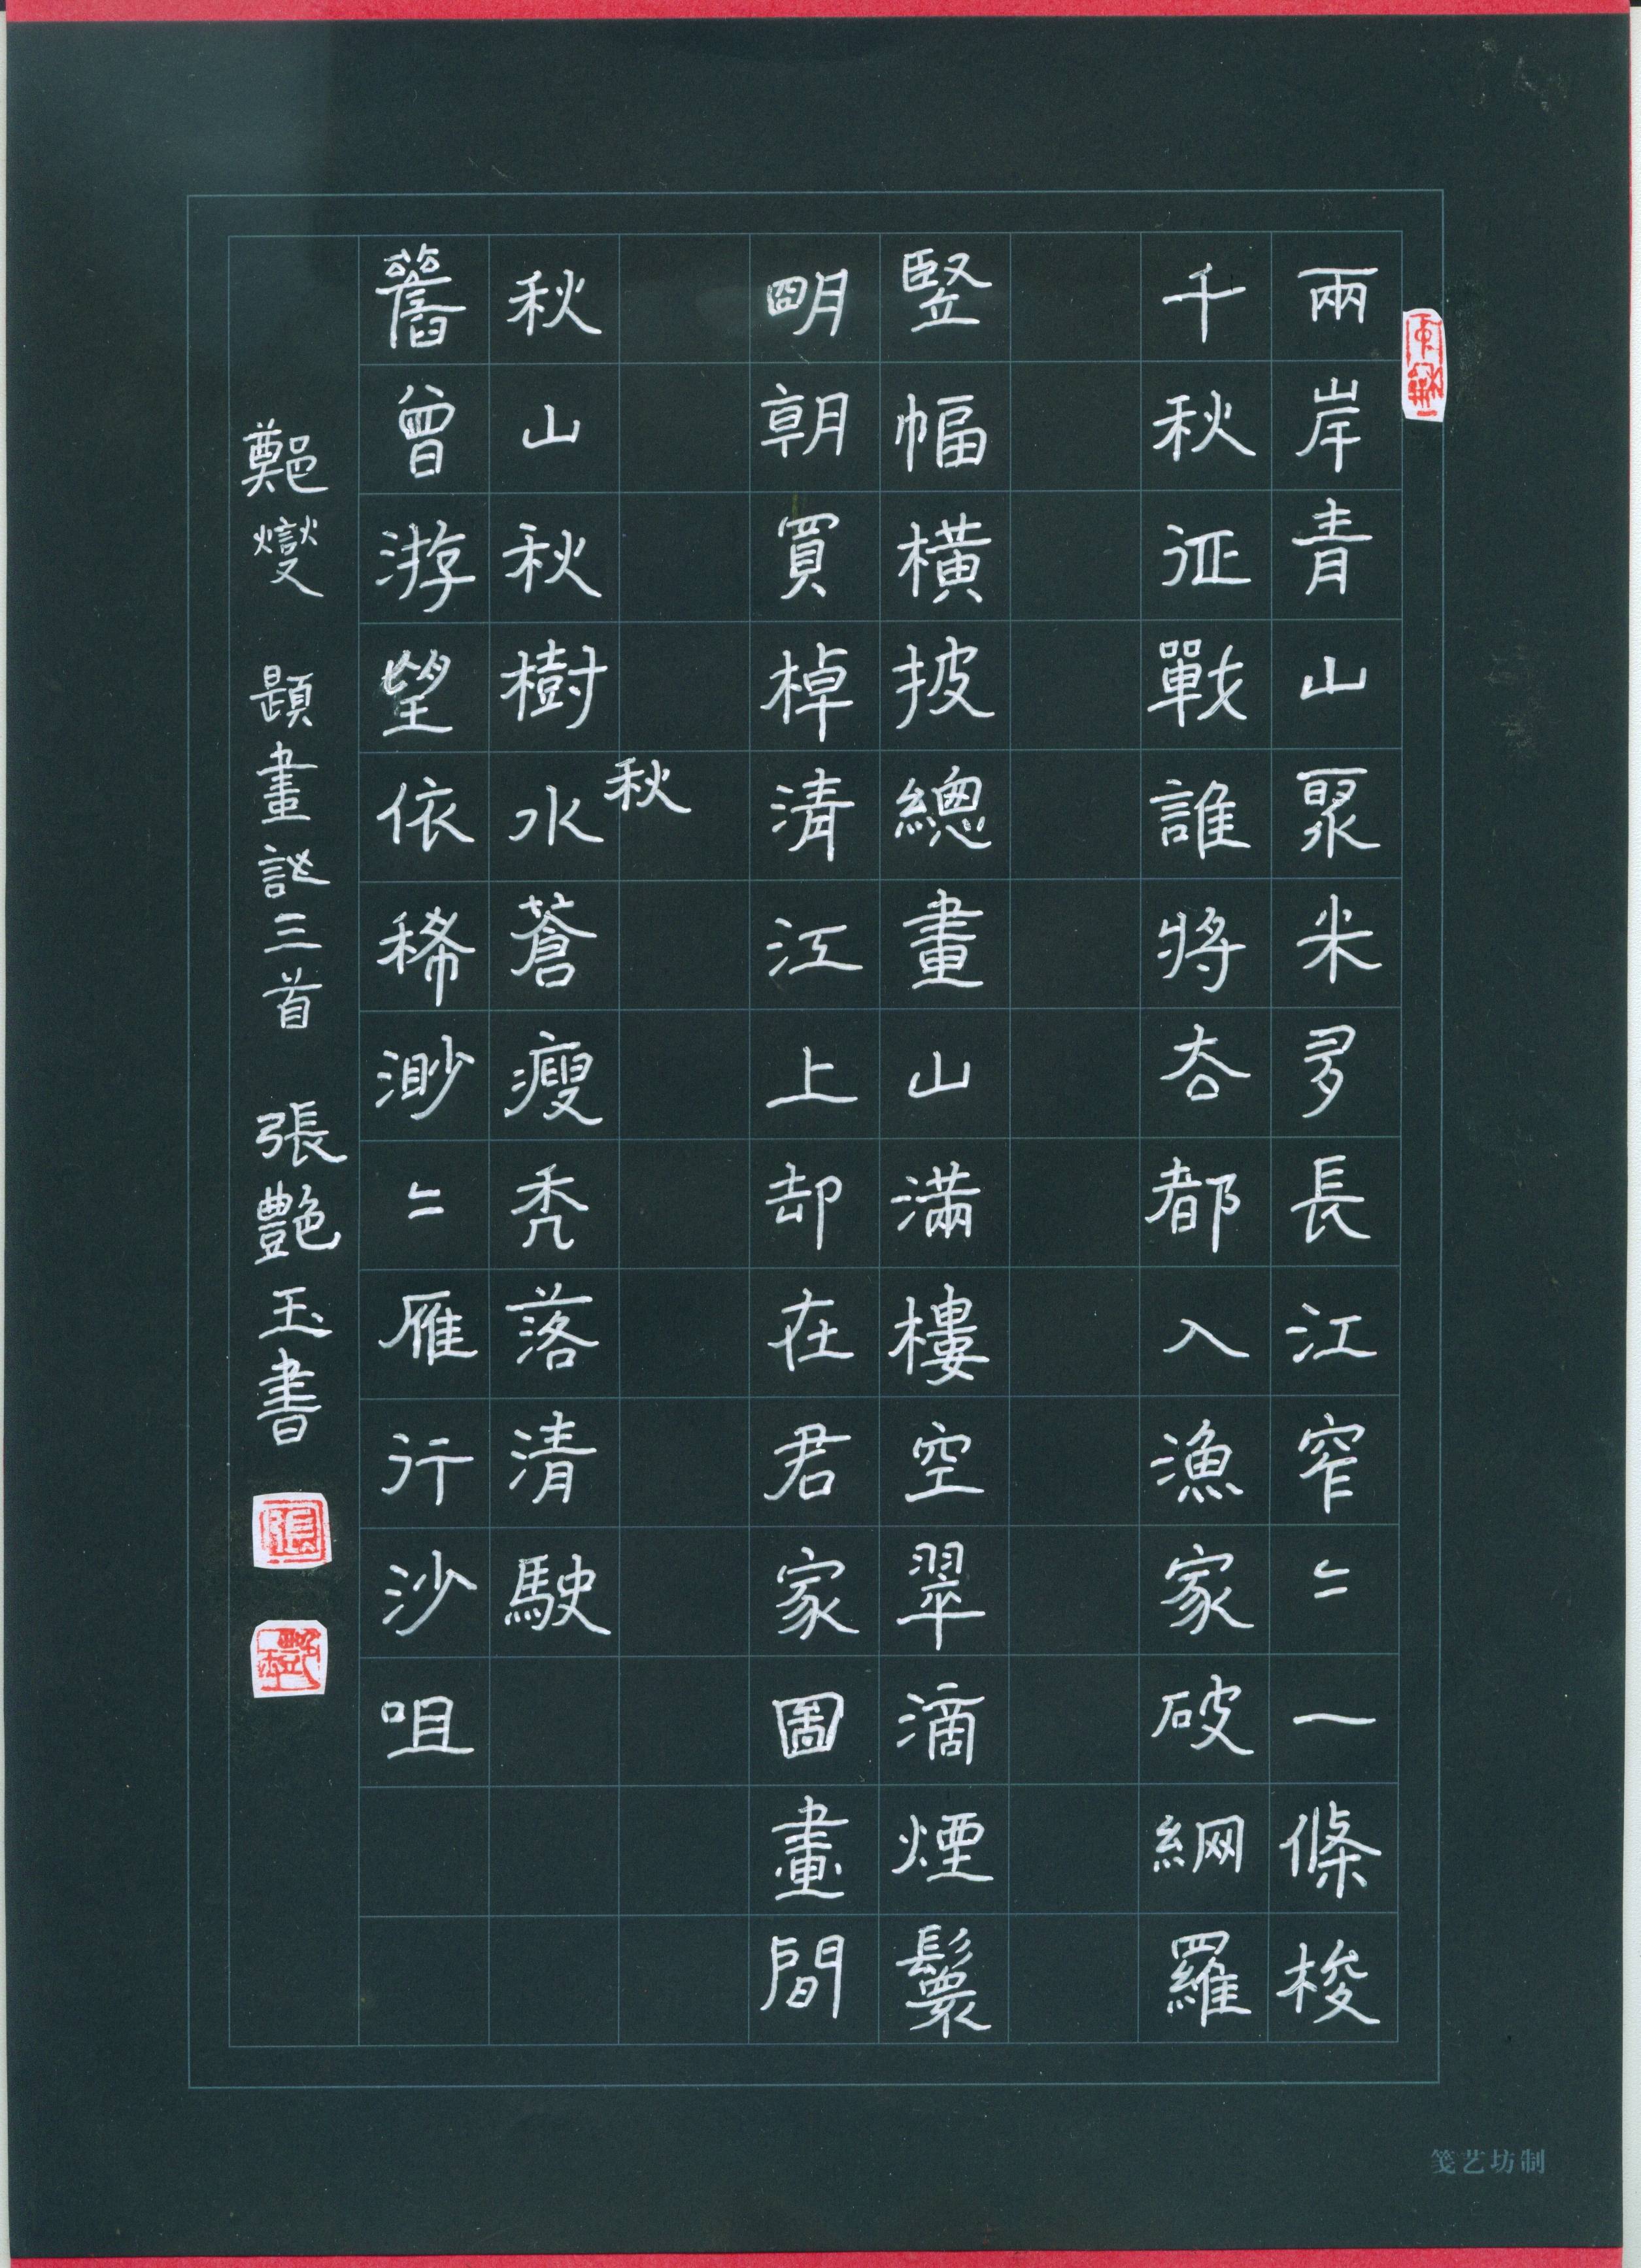 兩岸青山聚米多長江窄〻一條梭
千秋征戰誰將去都入漁家破網羅
豎幅橫披總畫山滿樓空翠滴煙鬟
明朝買棹清江上却在君家圖畫間
秋山秋樹秋水蒼瘦禿落清駛
舊曾游望依稀渺〻雁行沙咀
鄭燮 題畫詩三首 張艷玉書
張
笺艺坊制